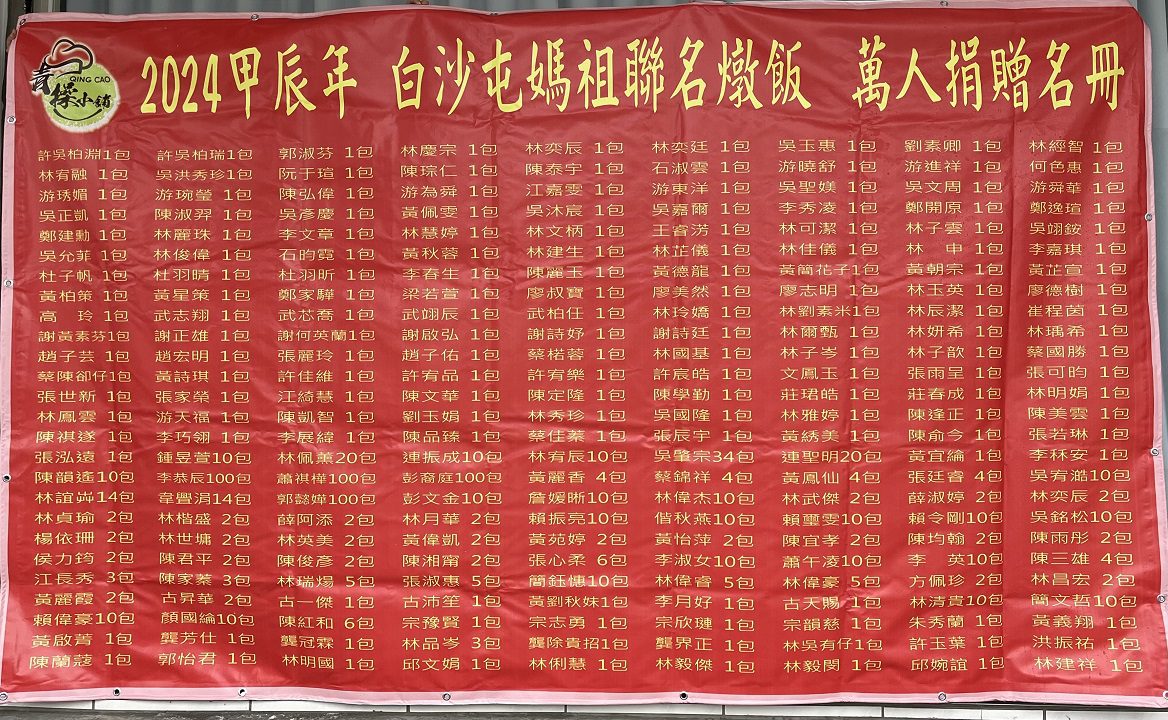 青操小舖
QING CAO
2024甲辰年 白沙屯媽祖聯名燉飯 萬人捐贈名冊
許吳柏淵1包 許吳柏瑞1包 郭淑芬 1包 林慶宗 1包 林奕辰 1包 林奕廷 1包 吳玉惠 1包 劉素卿 1包 林經智 1包
林宥融 1包 吳洪秀珍1包 阮于瑄 1包 陳琮仁 1包 陳泰宇 1包 石淑雲 1包 游曉舒 1包 游進祥 1包 何色惠 1包
游琇媚 1包 游琬瑩 1包 陳弘偉 1包 游為舜 1包 江嘉雯 1包 游東洋 1包 吳聖媄 1包 吳文周 1包 游舜華 1包
吳正凱 1包 陳淑羿 1包 吳彥慶 1包 黃佩雯 1包 吳沐宸 1包 吳嘉爾 1包 李秀凌 1包 鄭開原 1包 鄭逸瑄 1包
鄭建勳 1包 林麗珠 1包 李文章 1包 林慧婷 1包 林文柄 1包 王睿涝 1包 林可潔 1包 林子雲 1包 吳翊銨 1包
吳允菲 1包 林俊偉 1包 石昀霓 1包 黃秋蓉 1包 林建生 1包 林芷儀 1包 林佳儀 1包 林 申 1包 李嘉琪 1包
杜子帆 1包 杜羽晴 1包 杜羽昕 1包 李春生 1包 陳麗玉 1包 黃德龍 1包 黃簡花子1包 黃朝宗 1包 黃芷宣 1包
黃柏策 1包 黃星策 1包 鄭家驊 1包 梁若萱 1包 廖叔寶 1包 廖美然 1包 廖志明 1包 林玉英 1包 廖德樹 1包
高 玲 1包 武志翔 1包 武芯喬 1包 武翊辰 1包 武柏任 1包 林玲嬌 1包 林劉素米1包 林辰潔 1包 崔程茵 1包
謝黃素芬1包 謝正雄 1包 謝何英蘭1包 謝啟弘 1包 謝詩妤 1包 謝詩廷 1包 林爾甄 1包 林妍希 1包 林瑀希 1包
趙子芸 1包 趙宏明 1包 張麗玲 1包 趙子佑 1包 蔡楉蓉 1包 林國基 1包 林子岑 1包 林子歆 1包 蔡國勝 1包
蔡陳卻仔1包 黃詩琪 1包 許佳維 1包 許宥品 1包 許宥樂 1包 許宸皓 1包 文鳳玉 1包 張雨呈 1包 張可昀 1包
張世新 1包 張家榮 1包 汪綺慧 1包 陳文華 1包 陳定隆 1包 陳學勤 1包 莊珺皓 1包 莊春成 1包 林明娟 1包
林鳳雲 1包 游天福 1包 陳凱智 1包 劉玉娟 1包 林秀珍 1包 吳國隆 1包 林雅婷 1包 陳逢正 1包 陳美雲 1包
陳祺遂 1包 李巧翎 1包 李展緯 1包 陳品臻 1包 蔡佳蓁 1包 張辰宇 1包 黃綉美 1包 陳俞今 1包 張若琳 1包
張泓遠 1包 鍾昱萱10包 林佩薰20包 連振成10包 林宥辰10包 吳肇宗34包 連聖明20包 黃宜綸 1包 李秝安 1包
陳韻遙10包 李恭辰100包 蕭祺樺100包 彭裔庭100包 黃麗香 4包 蔡錦祥 4包 黃鳳仙 4包 張廷睿 4包 吳宥澔10包
林誼𡶶14包 韋疊涓14包 郭懿嬅100包 彭文金10包 詹媛晰10包 林偉杰10包 林武傑 2包 薛淑婷 2包 林奕辰 2包
林貞瑜 2包 林楷盛 2包 薛阿添 2包 林月華 2包 賴振亮10包 偕秋燕10包 賴璽雯10包 賴令剛10包 吳銘松10包
楊依珊 2包 林世墉 2包 林英美 2包 黃偉凱 2包 黃苑婷 2包 黃怡萍 2包 陳宜孝 2包 陳均翰 2包 陳雨彤 2包
侯力筠 2包 陳君平 2包 陳俊彥 2包 陳湘甯 2包 張心柔 6包 李淑女10包 蕭午凌10包 李 英10包 陳三雄 4包
江長秀 3包 陳家蓁 3包 林瑞煬 5包 張淑惠 5包 簡鈺憓10包 林偉睿 5包 林偉豪 5包 方佩珍 2包 林昌宏 2包
黃麗霞 2包 古昇華 2包 古一傑 1包 古沛笙 1包 黃劉秋妹1包 李月好 1包 古天賜 1包 林清貴10包 簡文哲10包
賴偉豪10包 顏國綸10包 陳紅和 6包 宗豫賢 1包 宗志勇 1包 宗欣璉 1包 宗韻慈 1包 朱秀蘭 1包 黃義翔 1包
黃啟菁 1包 龔芳仕 1包 龔冠霖 1包 林品岑 3包 龔除貴招1包 龔界正 1包 林吳有仔1包 許玉葉 1包 洪振祐 1包
陳蘭蔻 1包 郭怡君 1包 林明國 1包 邱文娟 1包 林俐慧 1包 林毅傑 1包 林毅閔 1包 邱婉誼 1包 林建祥 1包